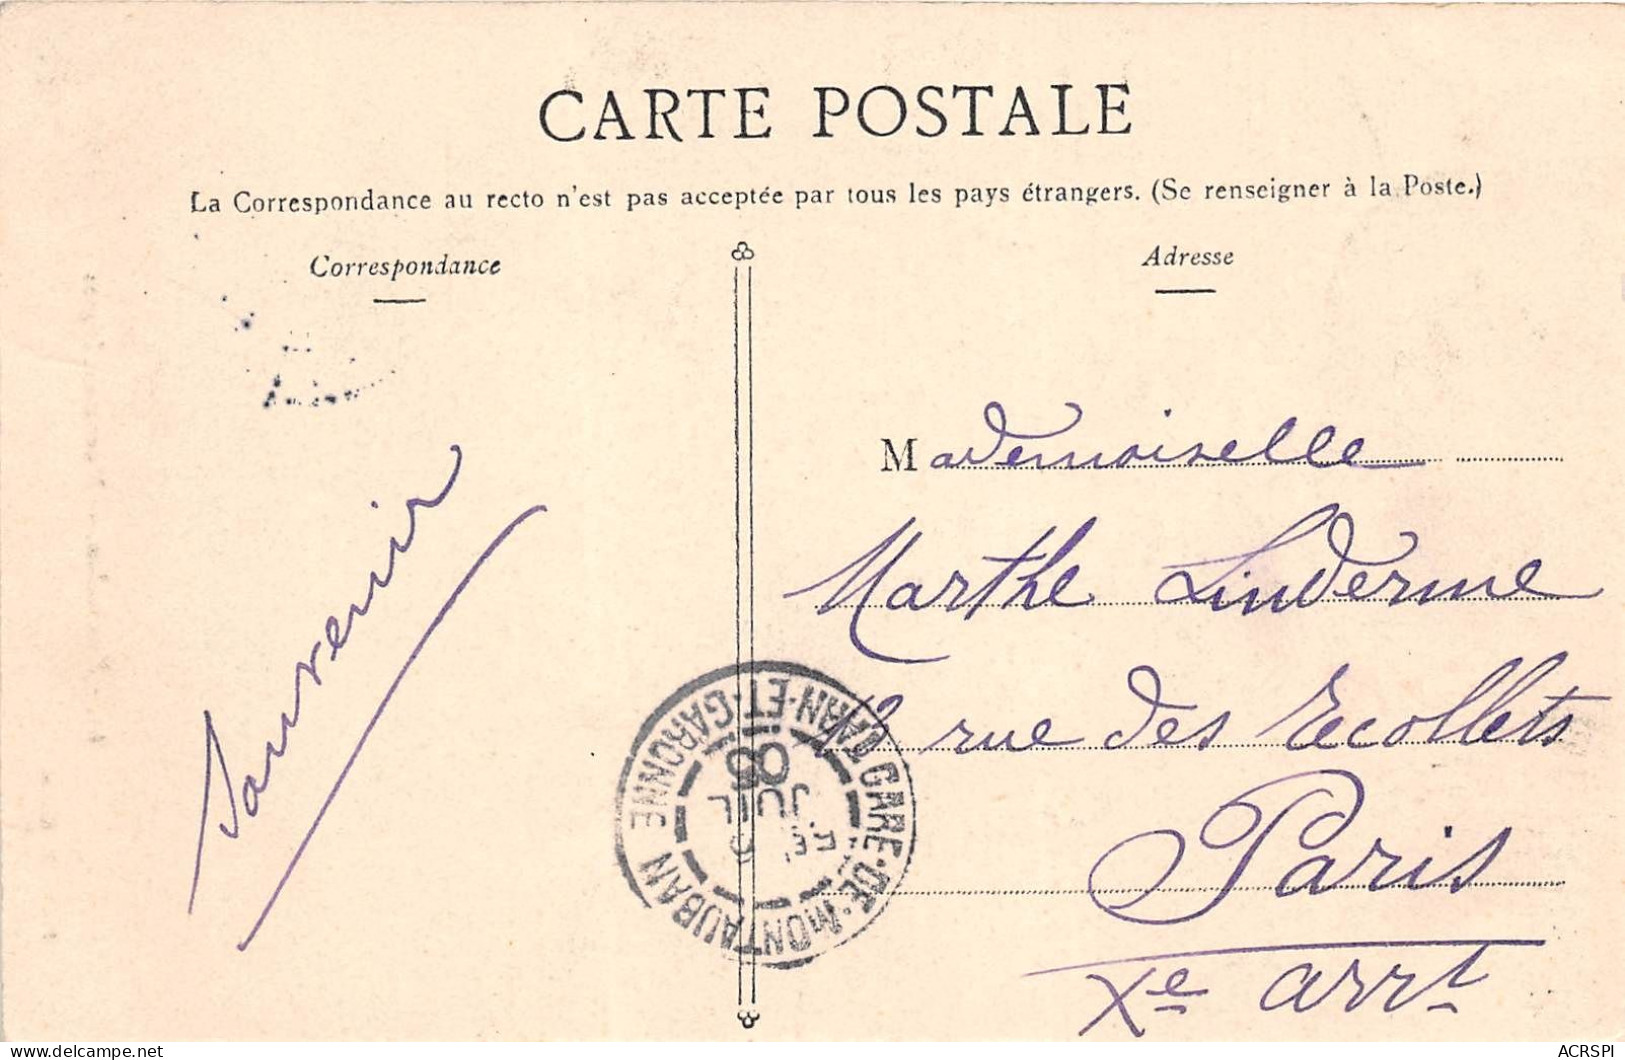 CARTE POSTALE
La Correspondance au recto n'est pas acceptée par tous les pays étrangers. (Se renseigner à la Poste.)
Correspondance
Adresse
Souvenir
Mademoiselle
Marthe Linderme
12 rue des Récollets
Paris
Xe arrt
GARE-DE-MONTAUBAN
TARN-ET-GARONNE
JUIL
08
Delcampe.net
ACRSPI